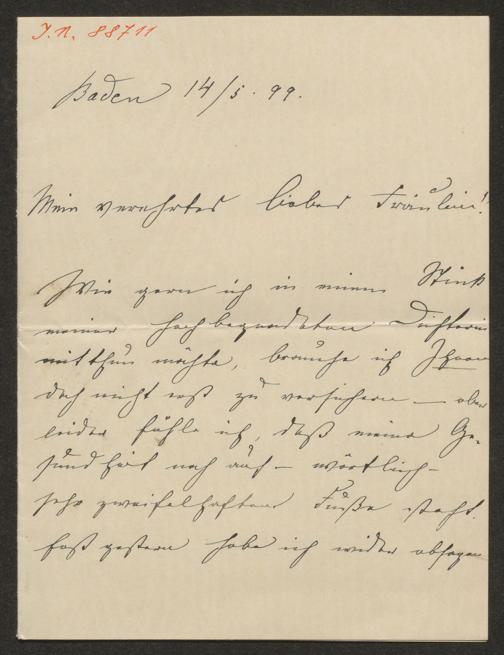 I. N. 88711
Baden 14/5. 99.
Mein verehrtes liebes Fräulein!
Wie gern ich in einem Stück
meiner hochbegnadeten Dichterin
mitthun möchte, brauche ich Ihnen
doch nicht erst zu versichern — aber
leider fühle ich, daß meine Ge-
sundheit noch auf – wörtlich –
sehr zweifelhaftem Fuße steht.
Erst gestern habe ich wieder absagen